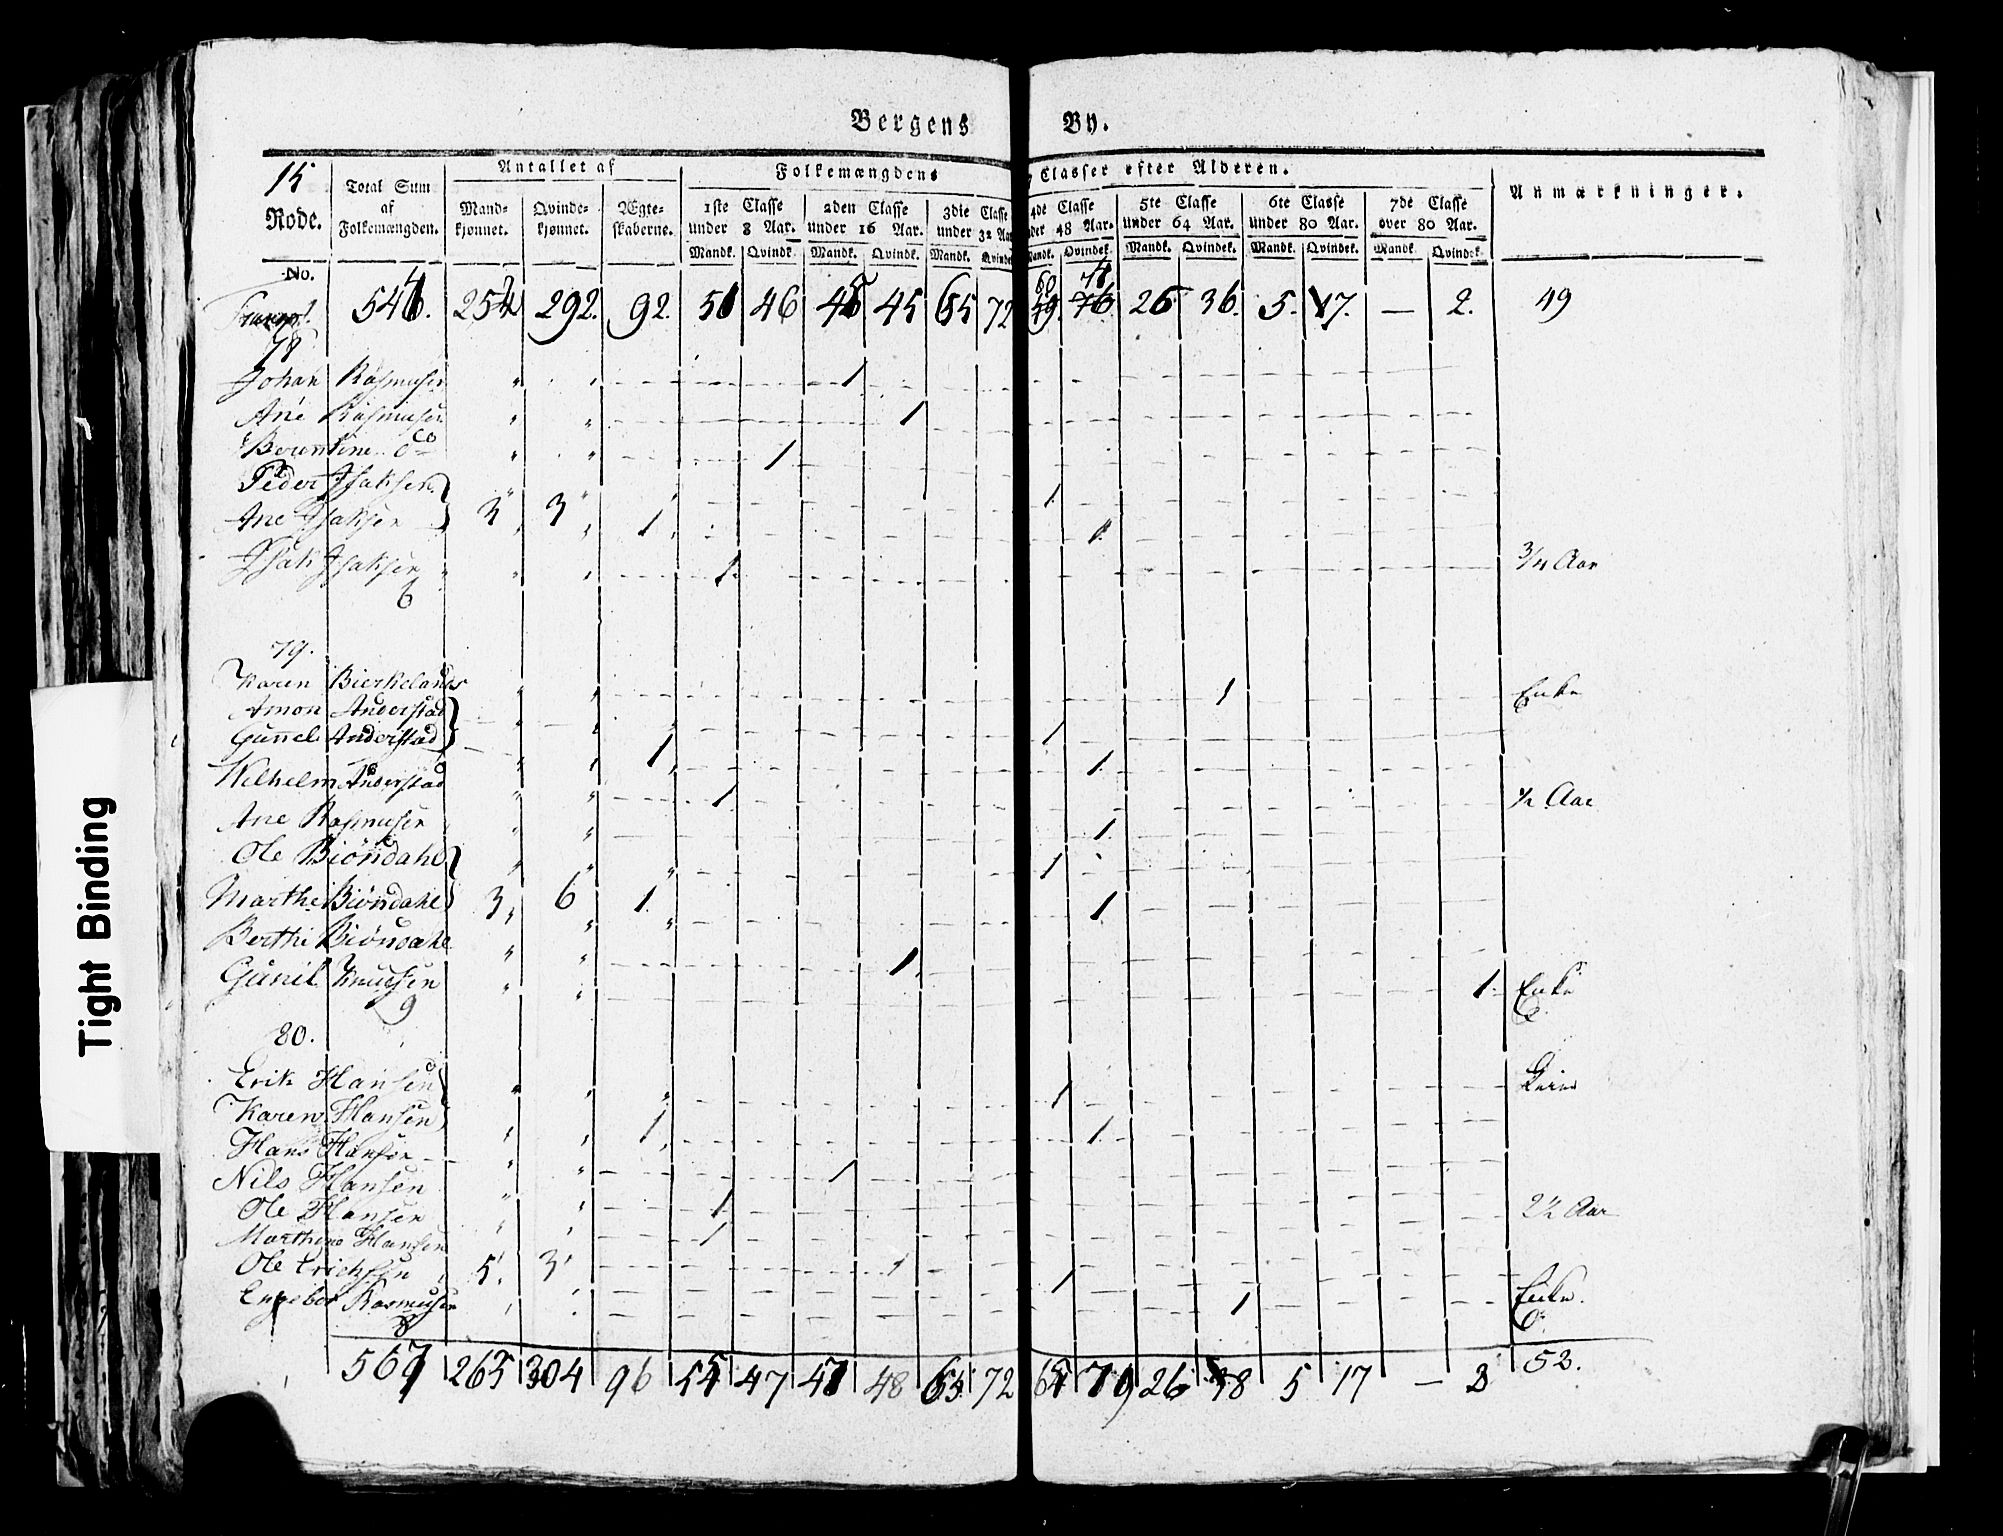 Bergens By.
15
Rode.
Total Sum
af
Folkemængden.
Antallet af
Mand-
kjønnet.
Qvinde-
kjønnet.
Ægte-
skaberne.
Folkemængdens Classer efter Alderen.
1ste Classe
under 8 Aar.
2den Classe
under 16 Aar.
3die Classe
under 32 Aar
4de Classe
48 Aar.
5te Classe
under 64 Aar.
6te Classe
under 80 Aar.
7de Classe
over 80 Aar.
Mandk. Qvindk. Mandk. Qvindk. Mandk. Mandk. Qvindek. Mandk. Qvindek. Mandk. Qvindek. Mandk. Qvindek.
Anmærkninger.
No.
292. 92. 46 45 65 72 26 36. 5. 17. — 2. 49
78
Johan Rasmusen 1
Ane Rasmusen 1
Berentine do 1
Peder Isaksen 1
Ane Isaksen 3 3 1 1
Isak Isaksen 1 3/4 Aar
6
79.
Karen Bierkelands 1 Enke
Amon Anderstad
Gunnel Anderstad 1 1
Wilhelm Anderstad 1
1 1/2 Aar
Ane Rasmusen 1
Ole Biöndahl 1
Marthe Biöndahl 3 6 1 1
Berthe Biöndahl 1
Gunil Knudsen 1 Enke
9
80.
Erik Hansen 1
Karen Hansen 1 1
Hans Hansen
Nils Hansen 1
Ole Hansen 1 2 1/2 Aar
Marthe Hansen 1
Ole Erichsen 5 3 1 1
Engebor Rasmusen 1 Enke.
8
567 265 304 96 47 48 65 72 79 26 38 5 17 — 3 52.
Tight Binding